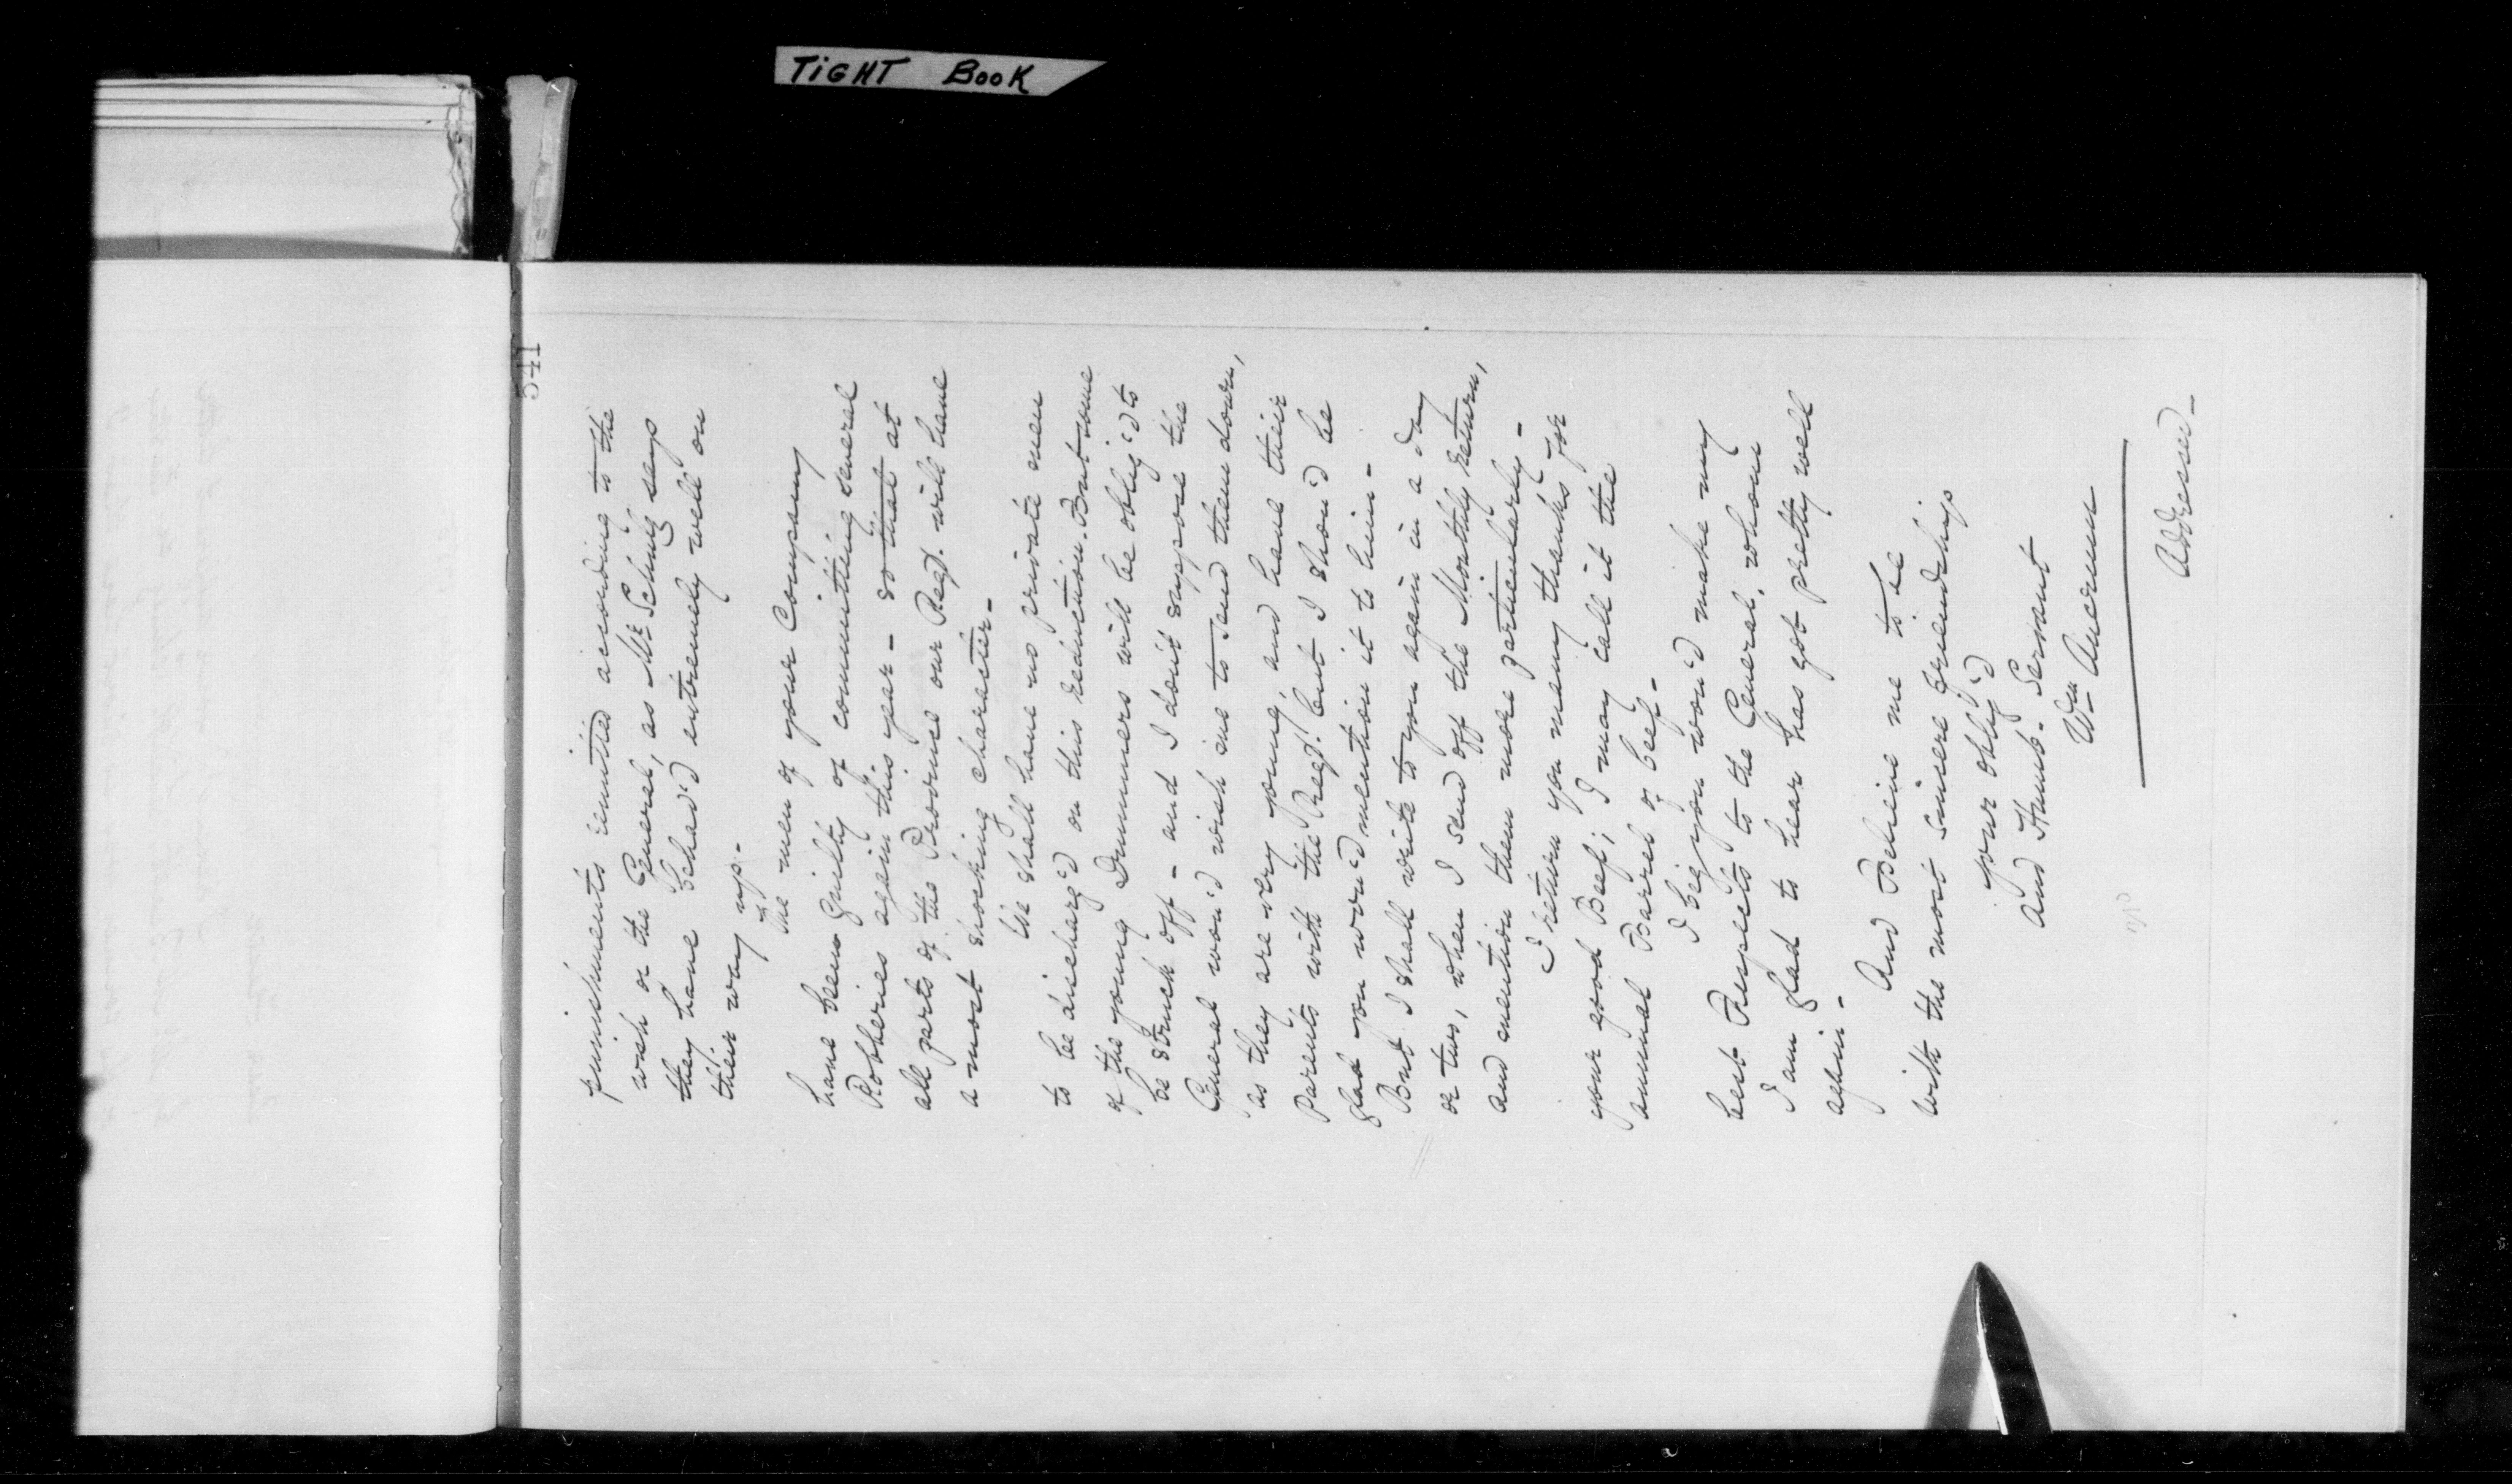 TIGHT BOOK
541
punishments remitted according to the
wish of the General, as Mr Schutz says
they have behav'd extremely well on
their way up.-
The men of your Company
have been guilty of committing several
Robberies again this year - so that at
all parts of the Province our Regt. will have
a most shocking character -
We shall have no private men
to be discharg'd on this reduction. But some
of the young Drummers will be oblig'd to
be struck off - and I don't suppose the
General wou'd wish me to send them down,
as they are very young, and have their
Parents with the Regt. but I shou'd be
glad you wou'd mention it to him -
But I shall write to you again in a day
or two, when I send off the Monthly Return,
and mention them more particularly -
I return you many thanks for
your good Beef; I may call it the
annual Barrel of beef -
I beg you wou'd make my
best Respects to the General, whom
I am glad to hear has got pretty well
again -
And Believe me to be
with the most sincere friendship
your oblig'd
and Humb. Servant
Wm Ancrum
Addressed -